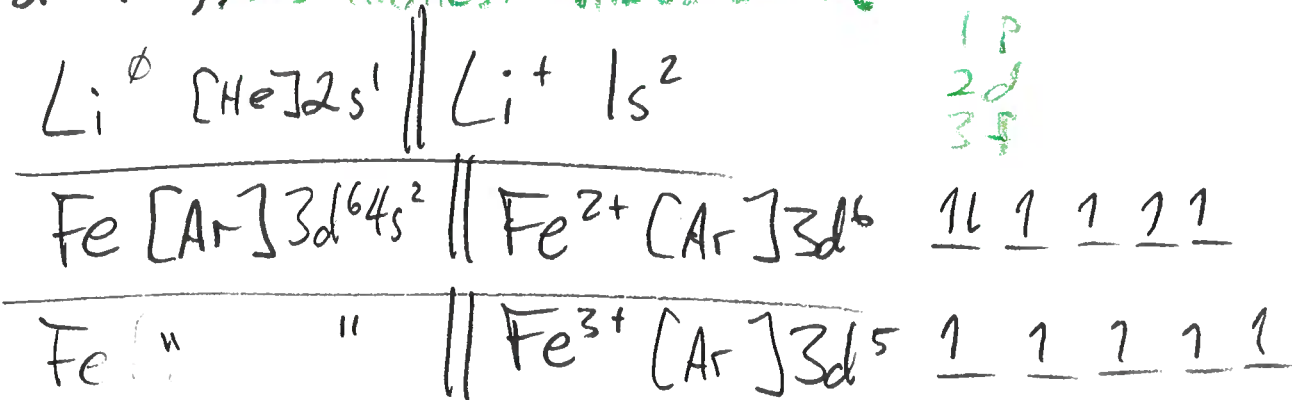 Li⁰ [He]2s¹ || Li⁺ 1s²
1 p
2 d
3 f
Fe [Ar]3d⁶4s² || Fe²⁺ [Ar]3d⁶ 1l 1 1 1 1
Fe " " || Fe³⁺ [Ar]3d⁵ 1 1 1 1 1